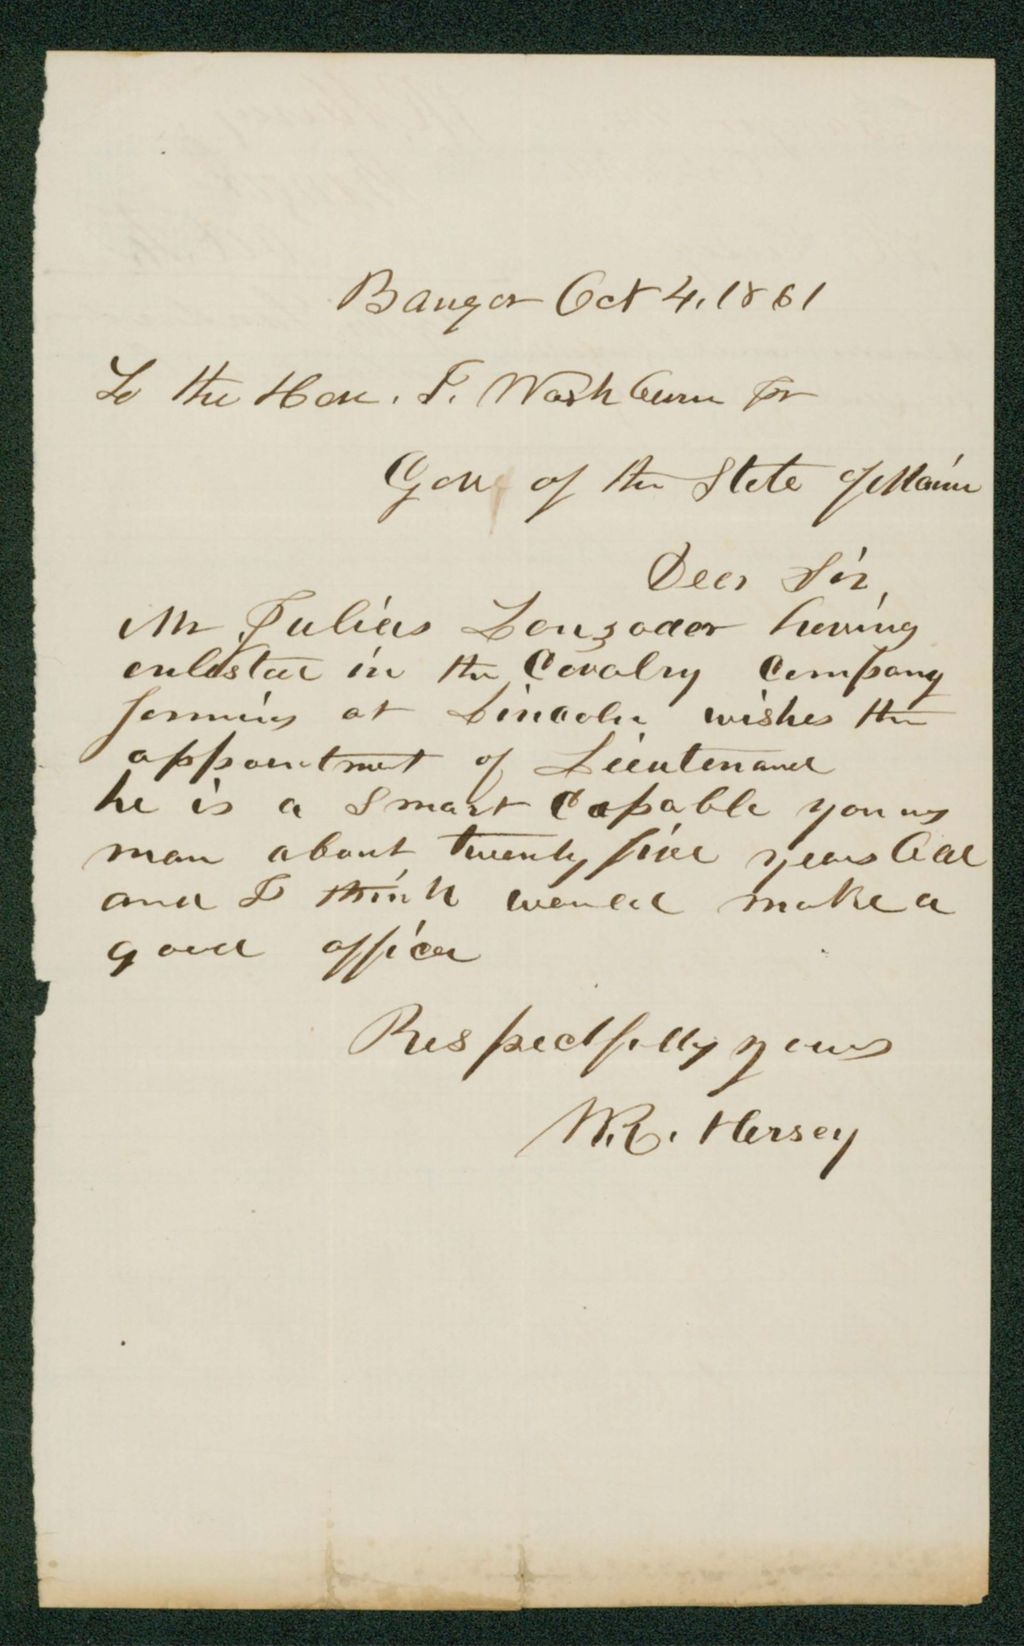 Bangor Oct 4, 1861
To the Hon. I. Washburn Jr
Gov of the State of Maine
Dear Sir,
Mr Julius having
enlisted in the Cavalry Company
forming at Lincoln wishes the
appointment of Lieutenant
he is a Smart Capable young
man about twenty five years Old
and I think would make a
good officer
Respectfully yours
W. R. Hersey